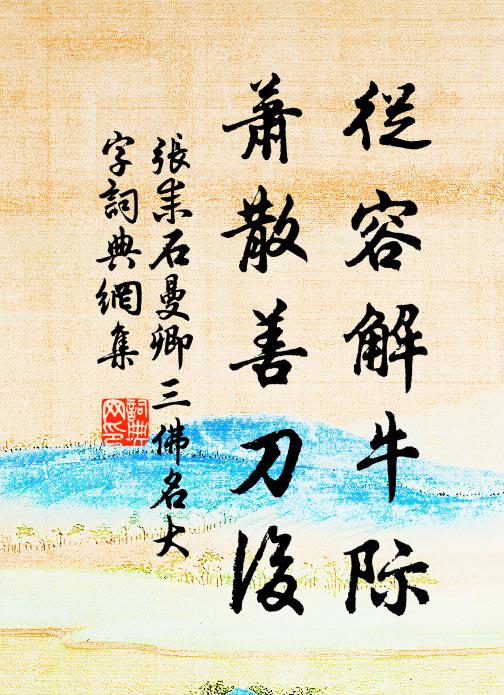 從容解牛际
蕭散善刀後
張耒石曼卿三佛名大
字詞典網集
詞典
网印